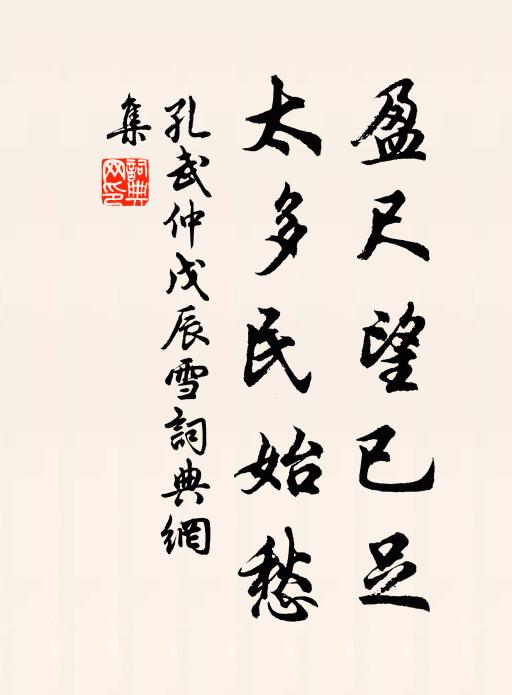 盈尺望已足
太多民始愁
孔武仲戊辰雪詞典網
集
詞典
网印